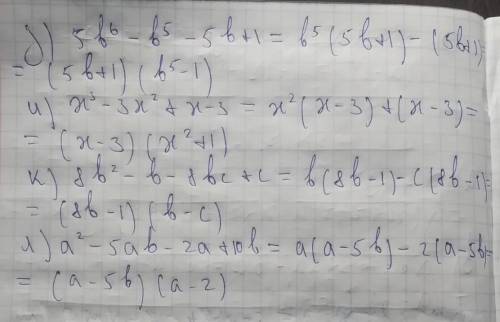 з) 5b⁶ - b⁵ - 5b+1 = b⁵(5b+1) - (5b+1)=
= (5b+1)(b⁵-1)
и) x³ - 3x² + x - 3 = x²(x-3)+(x-3)=
= (x-3)(x²+1)
к) 8b² - b - 8bc + c = b(8b-1) - c(8b-1)=
= (8b-1)(b-c)
л) a² - 5ab - 2a + 10b = a(a-5b) - 2(a-5b)=
= (a-5b)(a-2)